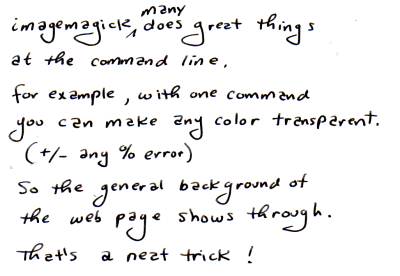 imagemagick, does many great things
at the command line.
for example, with one command
you can make any color transparent.
(+/- any % error)
So the general background of
the web page shows through.
That's a neat trick !